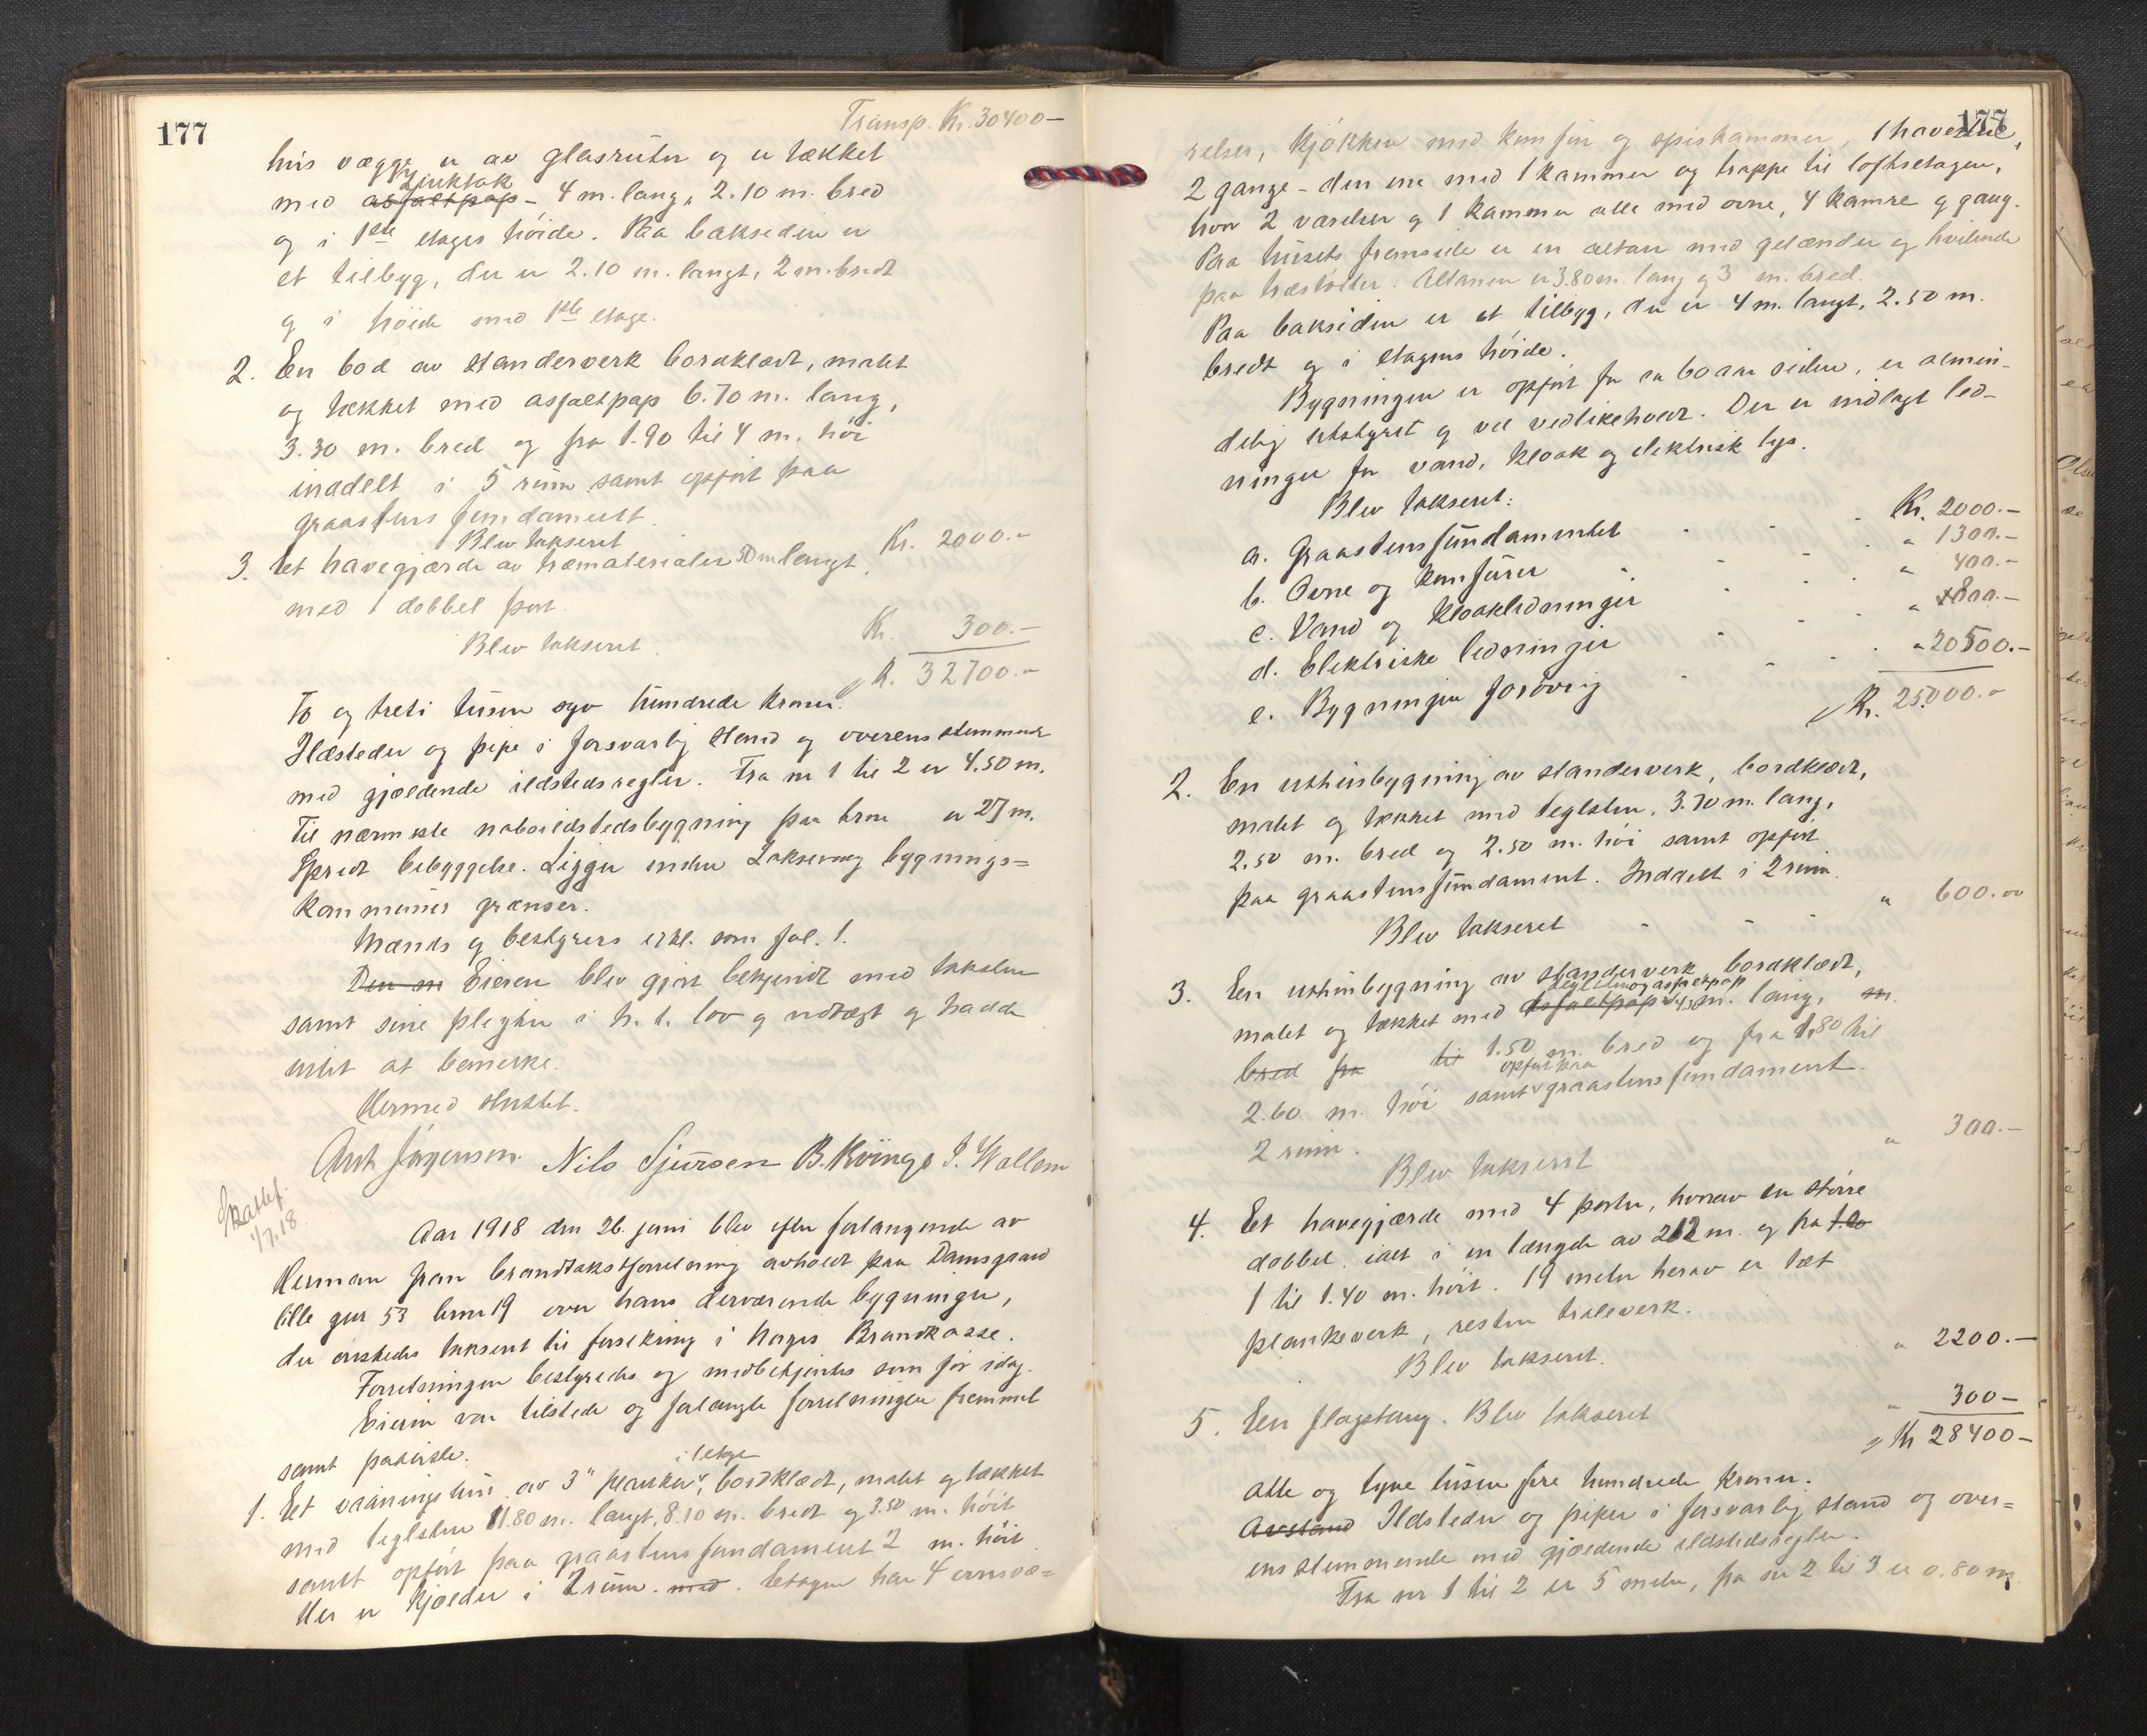 177
Transp. Kr. 30400-
hvis vægge er av glasruter og er tækket
zinktak
med asfaltpap - 4 m. lang, 2.10 m. bred
og i 1ste etages høide. Paa baksiden er
et tilbyg, der er 2.10 m. langt, 2 m. bredt
og i høide med 1ste etage.
2. En bod av standerverk bordklædt, malet
og tækket med asfaltpap 6.70 m. lang,
3.30 m. bred og fra 1.90 til 4 m. høi
inddelt i 5 rum samt opført paa
graastens fundament.
Blev takseret Kr. 2000.-
3. Et havegjærde av træmaterialer 50 m langt,
med 1 dobbel port.
Blev takseret. Kr. 300.-
Kr. 32700.-
To og treti tusen syv hundrede kroner.
Ildsteder og pipe i forsvarlig stand og overensstemmende
med gjældende ildstedsregler. Fra nr 1 til 2 er 4.50 m.
Til nærmeste naboildstedsbygning paa brnr er 27 m.
Spredt bebyggelse. Ligger inden Laksevaag bygnings=
kommunes grænser.
Mænds og bestyrers erkl. som fol. 1.
Den m Eieren blev gjort bekjendt med taksten
samt sine pligter i h. t. lov og vedtægt og hadde
intet at bemerke.
Hermed sluttet.
Ant Jørgensen. Nils Sjursen B. Kvinge J. Wallem
Skattef.
1/7.18.
Aar 1918 den 26. juni blev efter forlangende av
Herman fran brandtakstforretning avholdt paa Damsgaard
lille gnr 53 brnr 19 over hans derværende bygninger,
der ønskedes takseret til forsikring i Norges Brandkasse.
Forretningen bestyredes og medbetjentes som før idag.
Eieren var tilstede og forlangte forretningen fremmet
samt paaviste.
i 1 etage
1. Et vaaningshus av 3" planker, bordklædt, malet og tækket
med teglsten 11.80 m. langt, 8.10 m. bredt og 3.50 m. høit
samt opført paa graastens fundament 2 m. høit.
Her er kjælder i 2 rum. med. Etagen har 4 ernvæ=
177
relser, kjøkken med komfur og spiskammer, 1 havestue,
2 gange - den ene med 1 kammer og trappe til loftsetagen,
hvor 2 værelser og 1 kammer alle med ovne, 4 kamre og gang.
Paa husets fremside er en altan med gelænder og hvilende
paa træstøtter. Altanen er 3.80 m. lang og 3 m. bred.
Paa baksiden er et tilbyg, der er 4 m. langt, 2.50 m.
bredt og i etagens høide.
Bygningen er opført for ca 60 aar siden, er almin-
delig utstyret og vel vedlikeholdt. Der er indlagt led-
ninger for vand, kloak og elektrisk lys.
Blev takseret:
a. Graastensfundamentet Kr. 2000.-
b. Ovne og komfurer " 1300.-
c. Vand og kloakledninger " 400.-
d. Elektriske ledninger " 800.-
e. Bygningen forøvrig " 20500.-
Kr. 25000.-
2. En uthusbygning av standerverk, bordklædt,
malet og tækket med teglsten, 3.70 m. lang,
2.50 m. bred og 2.50 m. høi samt opført
paa graastensfundament. Inddelt i 2 rum.
Blev takseret " 600.00
3. En uthusbygning av standerverk bordklædt,
teglsten og asfaltpap
malet og tækket med asfaltpap 4.30 m. lang, m.
bred fra til 1.50 m. bred og fra 1.80 til
opført paa
2.60 m. høi samt graastensfundament.
2 rum.
Blev takseret " 300.-
4. Et havegjærde med 4 porter, hvorav en større
dobbel, ialt i en længde av 212 m. og fra 1.20
1 til 1.40 m. høit. 19 meter herav er tæt
plankeverk, resten traleverk.
Blev takseret. " 2200.-
5. En flagstang. Blev takseret " 300-
Kr 28400-
Otte og tyve tusen fire hundrede kroner.
Avstand Ildsteder og piper i forsvarlig stand og over=
ensstemmende med gjældende ildstedsregler.
Fra nr 1 til 2 er 5 meter, fra nr 2 til 3 er 0.80 m.